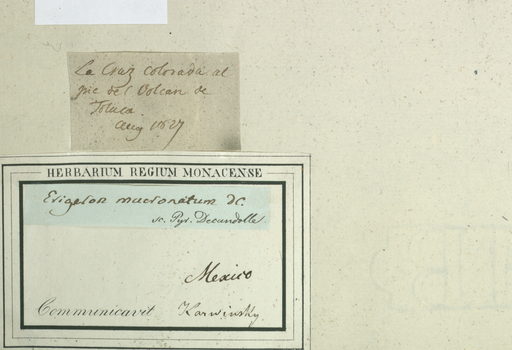 La Cruz colorada al
pie del Volcan de
Toluca.
Aug 1827
HERBARIUM REGIUM MONACENSE
Erigeron mucronatum DC.
sc. Pyr. Decandolle
Mexico
Communicavit Karwinsky